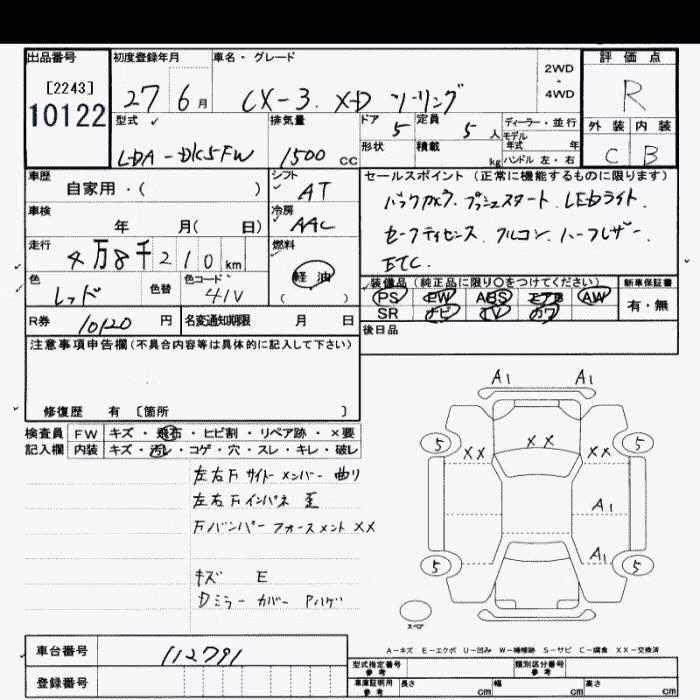 出品番号 初度登録年月 車名・グレード 2WD・4WD 評価点
[2243] 10122 27 6月 CX-3 XD ツーリング R
型式 排気量 ドア 定員 ディーラー・並行 外装 内装
LDA-DK5FW 1500 CC 5 5人 モデル年式 年
形状 積載 kg ハンドル 左・右 C B
車歴 シフト セールスポイント(正常に機能するものに限ります)
自家用・( ) AT バックカメラ.プッシュスタート.LEDライト.
車検 冷房
年 月( 日) AAC セーフティセンス.アルコン.ハーフレザー.
走行 燃料
4万8千210km 軽油 ETC.
色 色替 色コード ( ) 装備品(純正品に限り○をつけてください) 新車保証書
レッド 41V PS PW ABS エアB AW 有・無
R券 10120円 名変通知期限 月 日 SR ナビ TV カワ
注意事項申告欄(不具合内容等は具体的に記入して下さい) 後日品
修復歴 有 〔箇所 〕
検査員 FW キズ・飛石・ヒビ割・リペア跡・×要
記入欄 内装 キズ・汚レ・コゲ・穴・スレ・キレ・破レ
左右Fサイドメンバー曲り
左右Fインパネ歪
FバンパーフォースメントXX
キズ E
Dミラーカバー Pハゲ
A1 A1
5 XX XX XX 5
A1
5 A1 5
スペア
A-キズ E-エクボ U-凹み W-補修跡 S-サビ C-腐食 XX-交換済
車台番号 112791 型式指定番号 参考 類別区分番号 参考
登録番号 車庫証明用 参考 長さ cm 幅 cm 高さ cm